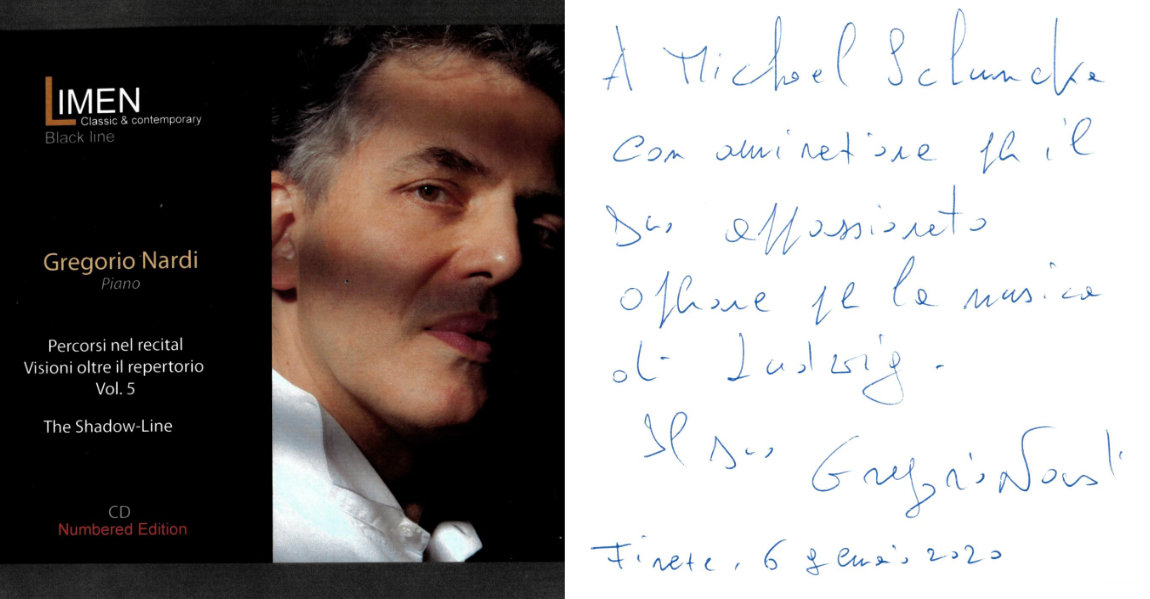 LIMEN
Classic & contemporary
Black line
Gregorio Nardi
Piano
Percorsi nel recital
Visioni oltre il repertorio
Vol. 5
The Shadow-Line
CD
Numbered Edition
A Michael Schuncke
con amirazione per il
Suo appassionato
operare per la musica
di Ludwig.
Il Suo Gregorio Nardi
Firenze, 6 gennaio 2020